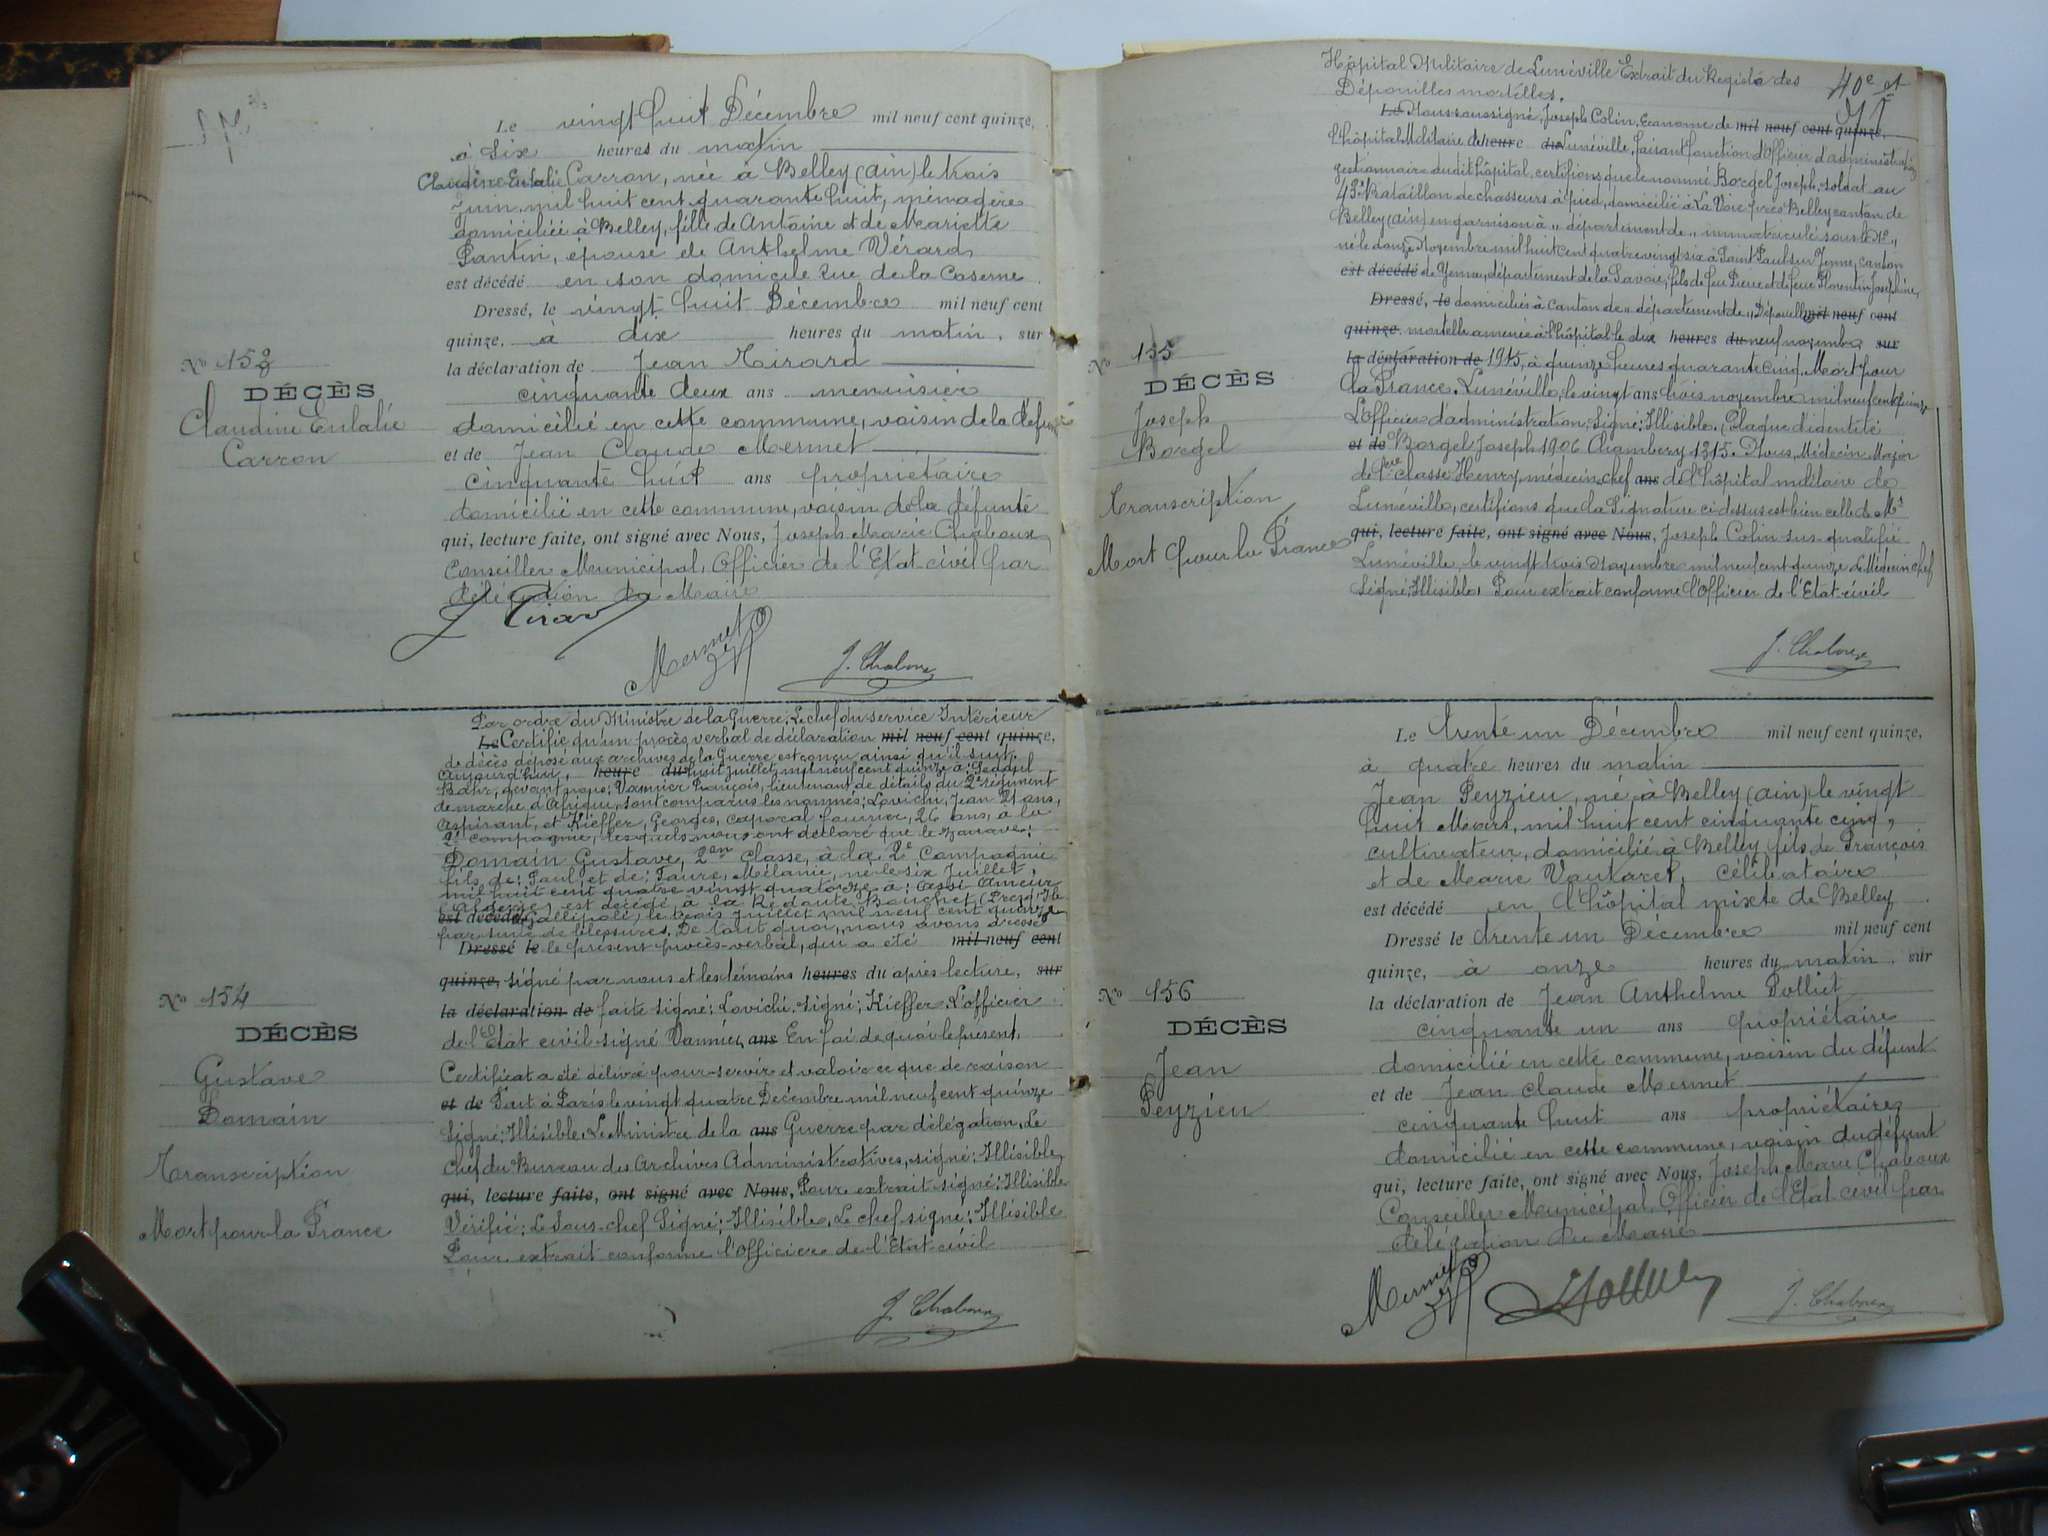 Le vingt huit Décembre mil neuf cent quinze,
à Six heures du matin
Claudine Eulalie Carron, née à Belley (ain) le trois
Juin mil huit cent quarante huit, ménagère
domiciliée à Belley, fille de Antoine et de Mariette
Pantin, épouse de Anthelme Vérard
est décédé en son domicile Rue de la Caserne
Dressé, le vingt huit Décembre mil neuf cent
quinze, à dix heures du matin, sur
la déclaration de Jean Tirard
cinquante deux ans menuisier
domicilié en cette commune, voisin de la défunte
et de Jean Claude Mermet
cinquante huit ans propriétaire
domicilié en cette commune, voisin de la défunte
qui, lecture faite, ont signé avec Nous, Joseph Marie Chaboux
Conseiller Municipal, Officier de l'Etat civil par
délégation du Maire
J. Tirard
Mermet
J. Chaboux
No 153
DÉCÈS
Claudine Eulalie
Carron
Par ordre du Ministre de la Guerre, Le chef du service Intérieur
Le Certifie qu'un procès verbal de déclaration mil neuf cent quinze,
de décès déposé aux archives de la Guerre est conçu ainsi qu'il suit.
Aujourd'hui, heure du huit juillet mil neuf cent quinze à Seddul
Bahr, devant nous, Vannier François, lieutenant de détails du 2e régiment
de marche d'Afrique, sont comparus les nommés: Lovichi, Jean 21 ans,
Aspirant, et Kieffer, Georges, caporal fourrier, 26 ans, à la
2e compagnie, lesquels nous ont déclaré que le zouave:
Domain Gustave, 2en classe, à la 2e Compagnie
fils de: Paul, et de: Faure, Mélanie, né le six Juillet,
mil huit cent quatre vingt quatorze à: Assi Ameur
(Algérie) est décédé, à la Redoute Bouchet (Presqu'Ile
est décédé Gallipoli, le trois juillet mil neuf cent quinze
par suite de blessures. De tout quoi, nous avons dressé
Dressé le le présent procès-verbal, qui a été mil neuf cent
quinze, signé par nous et les témoins heures du après lecture, sur
la déclaration de faite signé: Lovichi. signé; Kieffer L'officier
de l'Etat civil signé Vannier, ans En foi de quoi le présent,
Certificat a été délivré pour servir et valoir ce que de raison
et de Fait à Paris le vingt quatre Décembre mil neuf cent quinze
Signé: Illisible. Le Ministre de la ans Guerre par délégation, Le
Chef du Bureau des Archives Administratives, signé: Illisible,
qui, lecture faite, ont signé avec Nous, Pour extrait signé: Illisible
Vérifié: Le Sous-chef Signé: Illisible, Le chef signé: Illisible
Pour extrait conforme l'Officier de l'Etat civil
J. Chaboux
No 154
DÉCÈS
Gustave
Domain
Transcription
Mort pour la France
40e et
Hôpital Militaire de Lunéville Extrait du Registre des
Dépouilles mortelles.
Le Nous soussigné, Joseph Colin, Econome de mil neuf cent quinze
l'hôpital Militaire de heure du Lunéville, faisant fonction d'Officier d'administration
gestionnaire dudit hôpital, certifions que le nommé Borgel Joseph, soldat au
43e Bataillon de chasseurs à pied, domicilié à La Voie près Belley canton de
Belley (ain) en garnison à " département de " immatriculé sous le No "
né le douze Novembre mil huit cent quatre vingt six à Saint Paul sur Yenne, canton
est décédé de Yenne, département de la Savoie, fils de feu Pierre et de feue Florentin Joséphine,
Dressé, le domiciliés à canton de " département de " Dépouille mil neuf cent
quinze. mortelle amenée à l'hôpital le dix heures du neuf novembre sur
la déclaration de 1915, à quinze heures quarante cinq. Mort pour
la France. Lunéville, le vingt ans trois novembre mil neuf cent quinze
L'Officier d'administration, Signé: Illisible. (Plaque d'identité
et de Borgel Joseph 1906 Chambéry 1315. Nous, Médecin Major
de 1ère classe Henry, médecin chef ans de l'hôpital militaire de
Lunéville, certifions que la Signature ci dessus est bien celle de Mr
qui, lecture faite, ont signé avec Nous, Joseph Colin sus-qualifié
Lunéville le vingt trois Novembre mil neuf cent quinze Le Médecin chef
Signé: Illisible, Pour extrait conforme l'Officier de l'Etat civil
J. Chaboux
No 155
DÉCÈS
Joseph
Borgel
Transcription
Mort pour la France
Le trente un Décembre mil neuf cent quinze,
à quatre heures du matin
Jean Peyzieu, né à Belley (ain) le vingt
huit Mars, mil huit cent cinquante cinq,
cultivateur, domicilié à Belley fils de François
et de Marie Vautaret, célibataire
est décédé en l'hôpital mixte de Belley
Dressé le trente un Décembre mil neuf cent
quinze, à onze heures du matin, sur
la déclaration de Jean Anthelme Polliet
cinquante un ans propriétaire
domicilié en cette commune, voisin du défunt
et de Jean Claude Mermet
cinquante huit ans propriétaire
domicilié en cette commune, voisin du défunt
qui, lecture faite, ont signé avec Nous, Joseph Marie Chaboux
Conseiller Municipal, Officier de l'Etat civil par
délégation du Maire
Mermet
J. Chaboux
No 156
DÉCÈS
Jean
Peyzieu